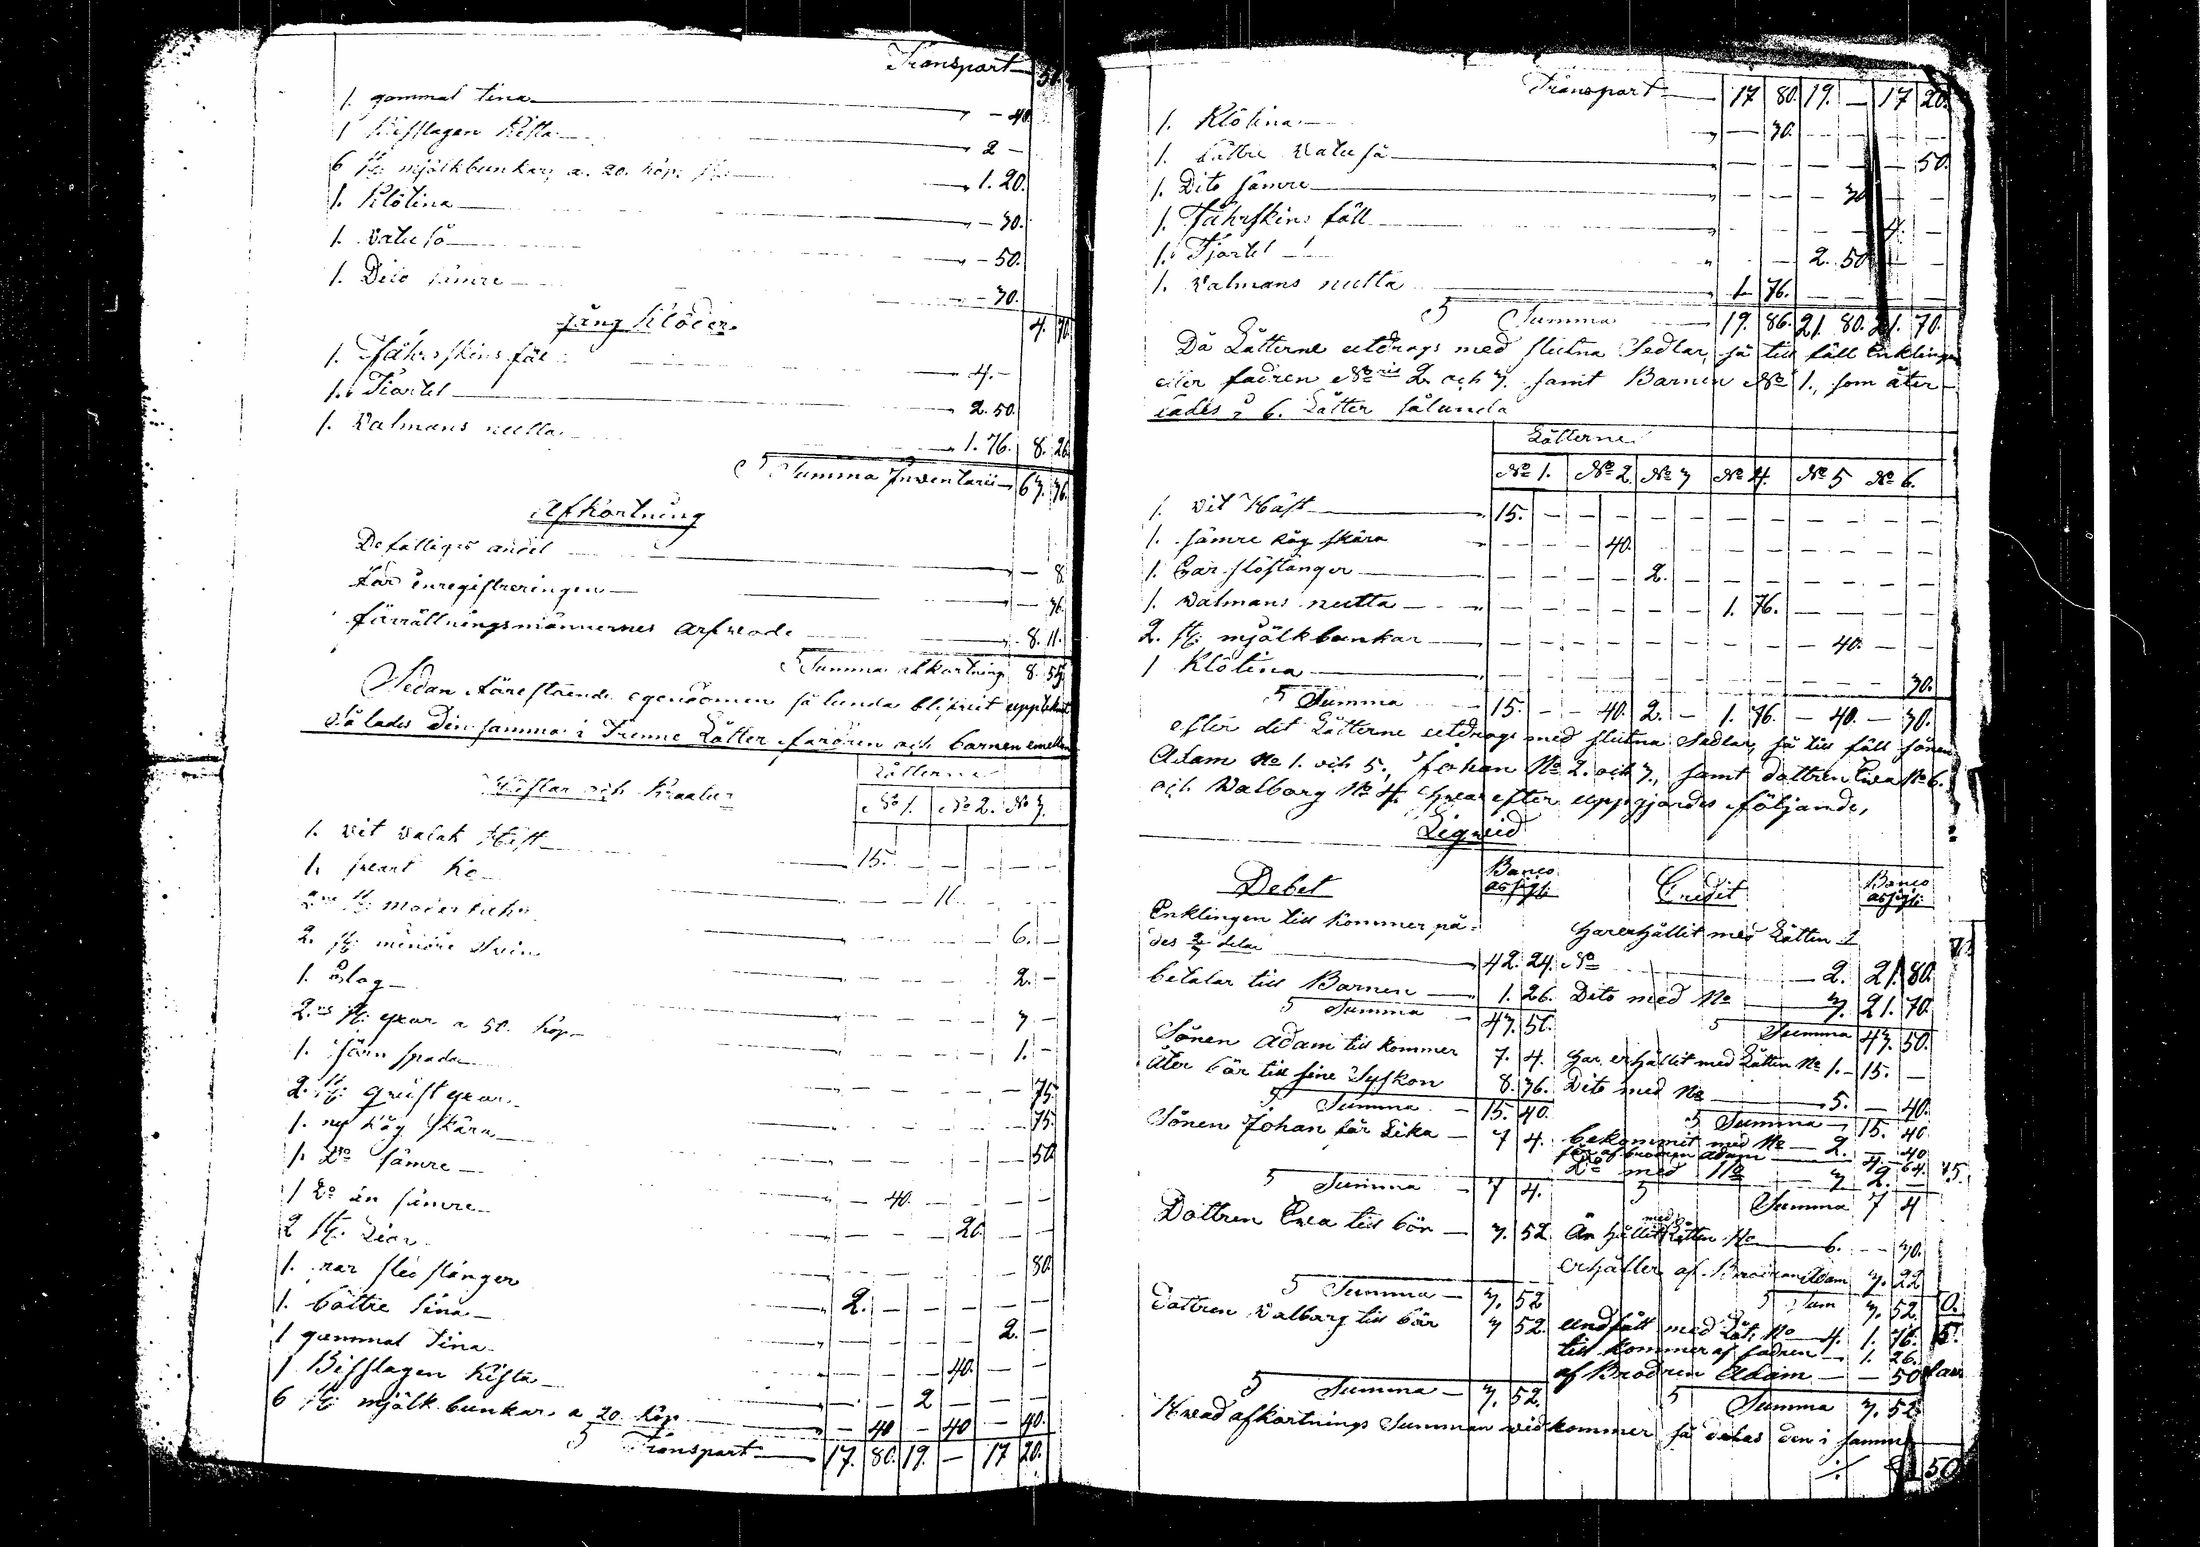 Transport 51.
1. gammal tina — 40.
1 Bisslagen Kista 2 —
6 st: mjölkbunkar, a. 20. kop. st: 1. 20.
1. Klötina — 30.
1. Watu så — 50.
1. Dito sämre — 30.
4. 70.
Gång Kläder.
1. Fåhrskins fäl 4. —
1. Tiortel 2. 50.
1. Walmans mutta 1. 76. 8. 26.
Summa Inventarii 63. 76.
Afkortning
De fattiges andel — 8.
för enregistreringen — 36.
förrättningsmännernes Arfwode 8. 11.
Summa afkortning 8. 55.
Sedan förestående egendomen så lunda blifwit uppteknat
så lades den samma i Trenne Lotter fadren och barnen emellan
Lotterne
Hästar och Kreatur No 1. No 2. No 3.
1. wit walak Häst 15. — — — — —
1. swart Ko — — 11. — — —
6. —
2. st: mindre Swin 2. —
1. Plog 3 —
2.ne st: yxar a 50. kop. 1. —
1. Järn spada — 75.
2. st: yxar — 75.
1. ny Råg skära — 50.
1. Do sämre — 40. — — — —
1 Do än sämre — — — 20. — —
2 st: Liar — 80.
1. par slöstänger 2. — — — — —
1. bättre tina 2. —
1 gammal tina — — — 40. — —
1 Bisslagen Kista — — 2 — — —
6 st: mjölk bunkar, a 20 kop. — 40 — 40 — 40.
Transport 17. 80. 19. — 17 20.
Transport 17 80. 19. — 17 20.
1. Klötina — 30. — — — —
1. bättre Watu så — — — — — 50.
1. Dito sämre — — — 30. — —
1. Fåhrskins fäll — — — — 4. —
1. Tjortel — — 2. 50. — —
1. Walmans mutta 1. 76. — — — —
Summa 19. 86. 21. 80. 21. 70.
Då Lotterne utdrogs med slutna Sedlar, så till föll Enklingen
eller fadren No 2. och 3. samt Barnen No 1., som åter
lades i 6. Lotter sålunda
Lotterne
No 1. No 2. No 3 No 4. No 5 No 6.
1. Wit Häst 15. — — — — — — — — — — —
1. sämre råg skära — — — 40. — — — — — — — —
1. Par slöstänger — — — — 2. — — — — — — —
1. Walmans mutta — — — — — — 1. 76. — — — —
2. st: mjölkbunkar — — — — — — — — — 40. — —
1 Klötina — — — — — — — — — — — 30.
Summa 15. — — 40. 2. — 1. 76. — 40. — 30.
efter det Lotterne utdrogs med slutna Sedlar, så till föll sönen
Adam No 1. och 5., Johan No 2. och 3., samt dottren Ewa No 6.
och Walborg No 4. hwarefter uppgjordes följande,
Liqwid
Debet Banco assign: Credit Banco assign:
Enklingen till kommer på-
des 2/3 delar 42. 24. har erhållit med Lotten
No 2. 21. 80.
betalar till Barnen 1. 26. Dito med No 3. 21. 70.
Summa 43. 50. Summa 43. 50.
Sönen Adam till kommer 7. 4. har erhållit med Lotten No 1. 15. —
Åter bär till sine Syskon 8. 36. Dito med No 5. — 40.
Summa 15. 40. Summa 15. 40
Sönen Johan får Lika 7 4. bekommit med No 2. — 40
får af brodren Adam 4. 64.
Do med No 3 2. —
Summa 7 4. Summa 7 4
Dottren Ewa till bör 3. 52 Än hållit med Lotten No 6. — 30.
erhåller af Brodren Adam 3. 22
Summa 3. 52 Sum 3. 52.
Dottren Walborg till bör 3 52. undfått med Lott No 4. 1. 76.
till kommer af fadren 1. 26.
af Brodren Adam — 50
Summa 3. 52. Summa 3. 52
Hwad afkortnings Summan widkommer så delas den i samma
50